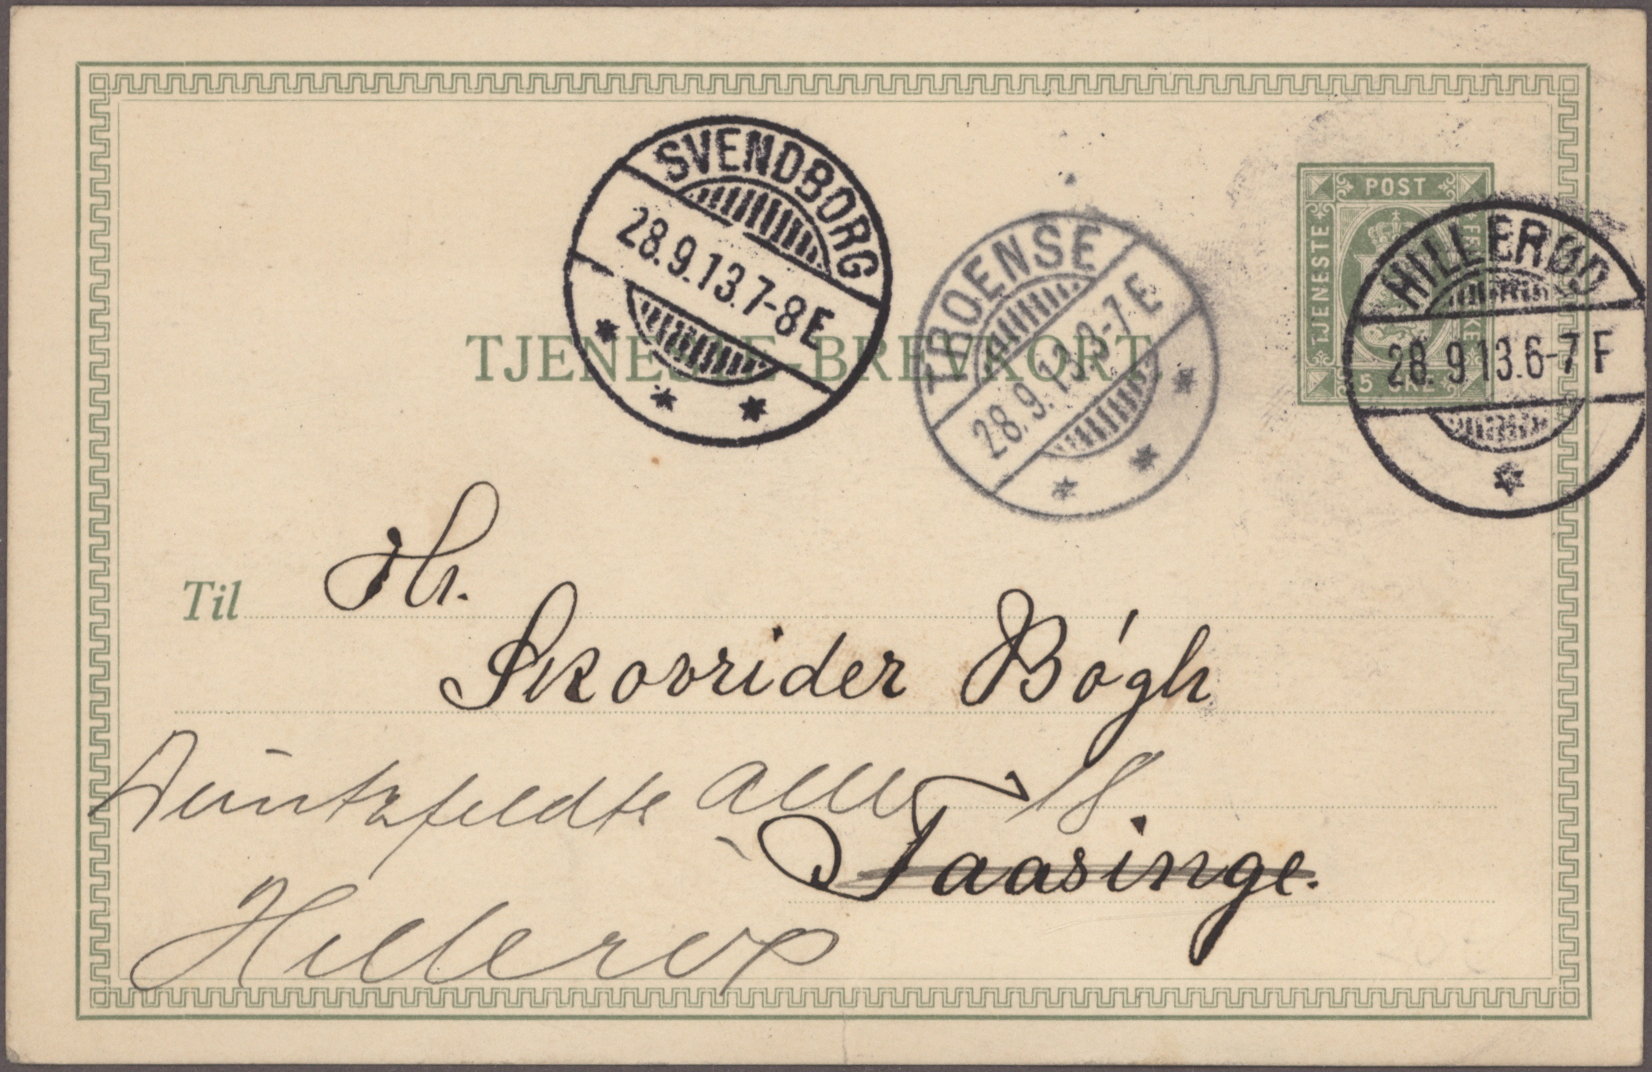 SVENDBORG
28.9.13.7-8 E
TROENSE
28.9.13.3-7 E
POST
TJENESTE
FRIMÆRKE
5 ØRE
HILLERØD
28.9.13.6-7 F
TJENESTE-BREVKORT
Til Hr.
Skovrider Bógh
Alle 18
Taasinge.